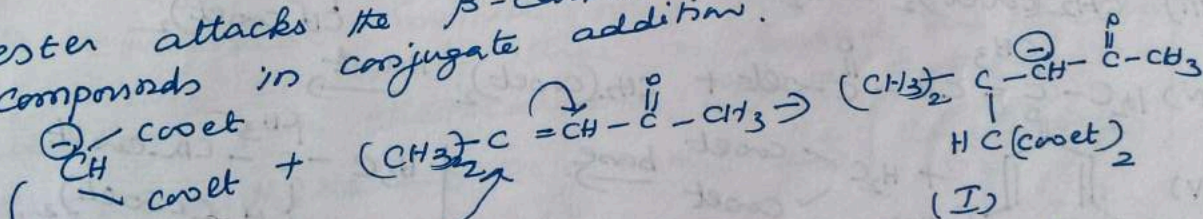 ester attacks the β-
compounds in conjugate addition.
⊖CH(cooet)(cooet) + (CH3)2-C=CH-C(=O)-CH3 → (CH3)2-C(-HC(cooet)2)-⊖CH-C(=O)-CH3
(I)